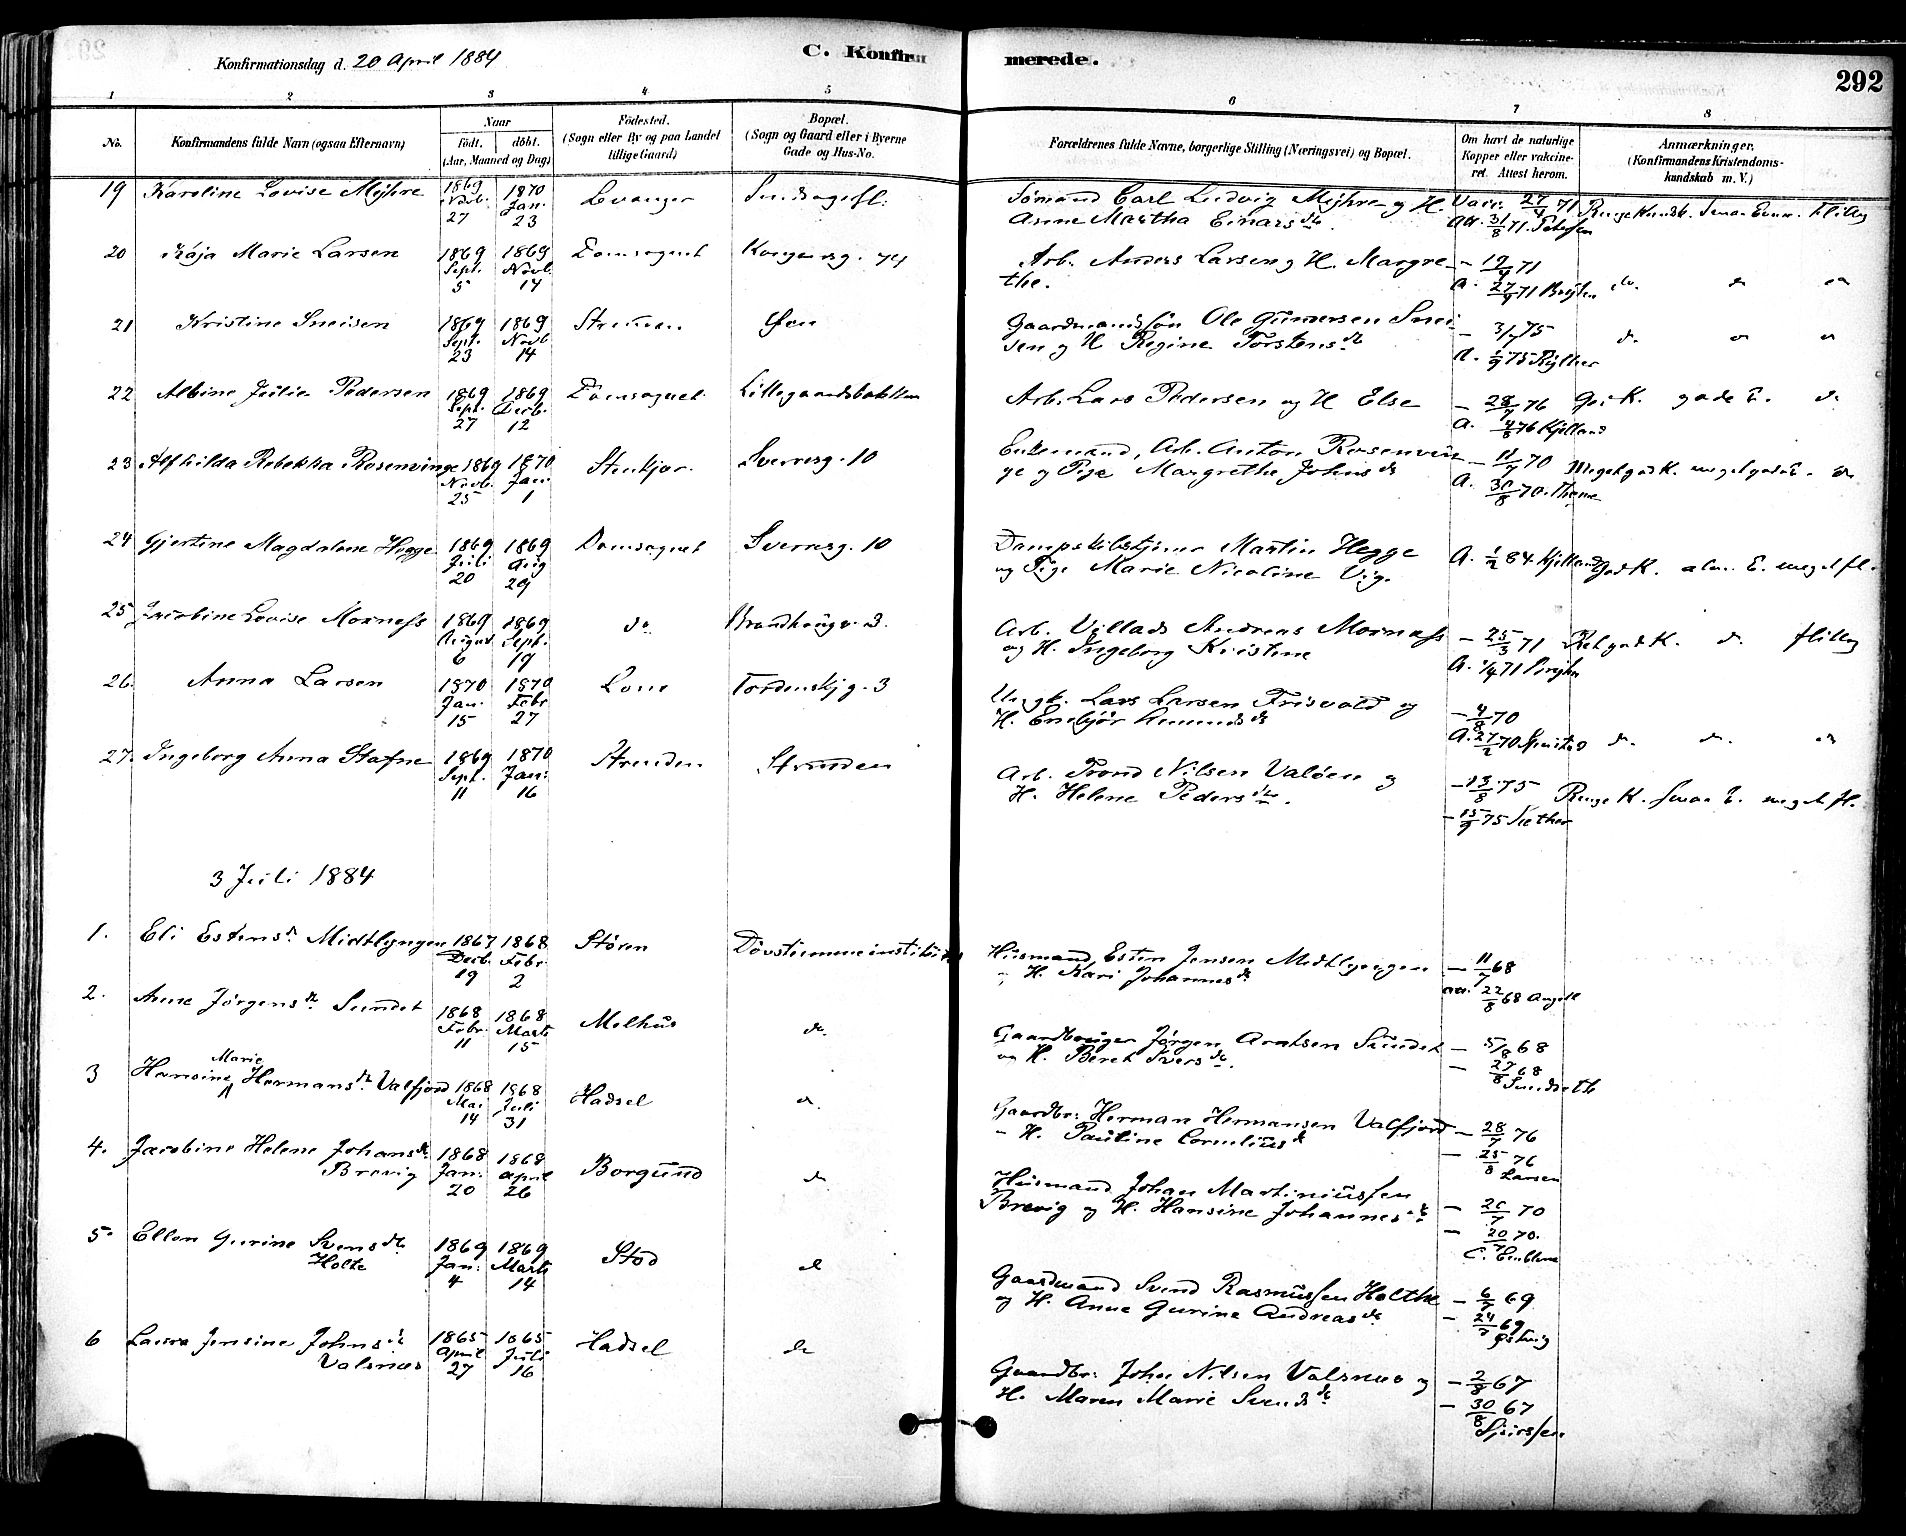 Konfirmationsdag d. 20 April 1884
C. Konfirmerede.
292
1 2 3 4 5 6 7 8
No.
Konfirmandens fulde Navn (ogsaa Efternavn)
Naar
födt. döbt.
(Aar, Maaned og Dag)
Födested.
(Sogn eller By og paa Landet
tillige Gaard)
Bopæl.
(Sogn og Gaard eller i Byerne
Gade og Hus-No.
Forældrenes fulde Navne, borgerlige Stilling (Næringsvei) og Bopæl.
Om havt de naturlige
Kopper eller vakcine-
ret. Attest herom.
Anmærkninger.
(Konfirmandens Kristendoms-
kundskab m. V.)
19 Karoline Lovise Myhre 1869 Novb. 27 1870 Jan. 23 Levanger
Sömand Carl Ludvig Myhre og H.
Anne Martha Einarsdtr.
Vacc. 27/4 71
Att. 31/8 71. Petersen
20 Kaja Marie Larsen 1869 Sept. 5 1869 Novb. 14 Domsognet Kongensg. 74
Arb. Anders Larsen og H. Margre-
the.
21 Kristine Sneisen 1869 Sept. 23 1869 Novb. 14 Strinden Øen
Gaardmandssön Ole Gunnersen Snei-
sen og H. Regine Torstensdr
22 Albine Julie Pedersen 1869 Sept. 27 1869 Decb. 12 Domsognet Lillegaardsbakken
Arb. Lars Pedersen og H. Else
- 28/7 76
A. 4/8 76 Kjelland
23 Alfhilda Rebekka Rosenvinge 1869 Novb. 25 1870 Jan. 1 Stenkjær. Sverresg. 10
Enkemand, Arb. Anton Rosenvin-
ge og Pige Margrethe Johnsdr
- 11/7 70
A. 30/8 70. Thome
Meget god K. meget god E. do
24 Gjertine Magdalene Hegge 1869 Juli 20 1869 Aug 29 Domsognet Sverresg. 10
Dampskibstjener Martin Hegge
og Pige Marie Nicoline Vig.
A. 1/2 84 Kjelland
God K. alm. E. meget fl.
25 Jacobine Lovise Moxness 1869 August 6 1869 Sept. 19 do Brandhaugv. 3.
Arb. Villads Andreas Moxness
og H. Ingeborg Kristine
- 25/3 71
Ret god K. do flittig
26. Anna Larsen 1870 Jan. 15 1870 Febr 27 Lom Tordenskj g. 3
Ungk. Lars Larsen Frisvold og
H. Embjör Amundsdr
- 4/8 70
27. Ingeborg Anna Stafne 1869 Sept. 11 1870 Jan: 16 Strinden Strinden
Arb. Trond Nilsen Valöen og
H. Helene Pedersdtr.
- 13/8 75
- 15/9 75 Sæther
Ringe K. smaa E. meget fl.
3 Juli 1884
1. Eli Estensdr. Midtlyngen 1867 Decb. 19 1868 Febr. 2 Stören Dövstummeinstitutet
Husmand Esten Jensen Midtlyngen
og H. Kari Johannesdr
- 11/7 68
Att. 22/8 68 Angell
2. Ane Jörgensdr. Sundet 1868 Febr. 11 1868 Marts 15 Melhus do.
Gaardbruger Jörgen Arntsen Sundet
og H. Beret Iversdr.
- 5/8 68
- 27/8 68 Sundseth
3 Hansine Marie Hermansdr. Valfjord 1868 Mai 14 1868 Juli 31 Hadsel do.
Gaardbr. Herman Hermansen Valfjord
og H. Pauline Corneliusdr
- 28/7 76
- 25/8 76 Larsen
4. Jacobine Helene Johansdr.
Brevig 1868 Jan: 20 1868 April 26 Borgund do
Husmand Johan Martiniussen
Brevig og H. Hansine Johannesdr
- 20/7 70
- 20/7 70.
5. Ellen Gurine Svensdtr.
Holte 1869 Jan: 4 1869 Marts 14 Stod do
Gaardmand Svend Rasmussen Holthe
og H. Anne Gurine Andreasdr.
- 6/7 69
- 24/7 69
6 Laura Jensine Johnsdr.
Valsnæs 1865 April 27 1865 Juli 16 Hadsel do
Gaardbr: John Nilsen Valsnæs og
H. Maren Marie Svendsdr.
- 2/8 67
- 30/8 67